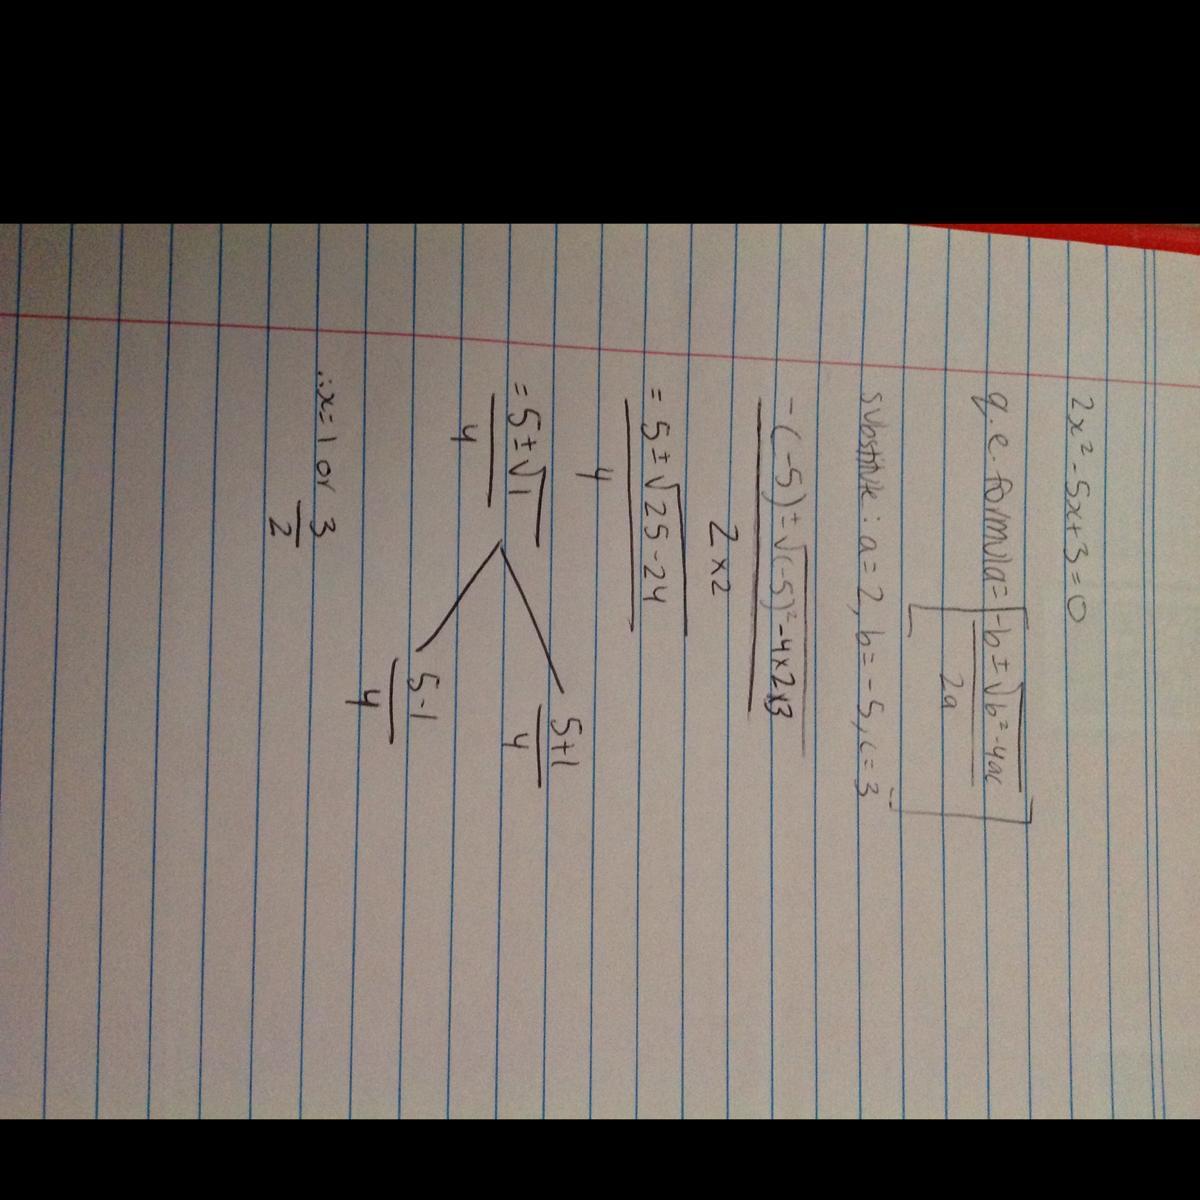 2x² - 5x + 3 = 0
q.e. formula = [-b ± √b² - 4ac
2a]
substitute : a = 2, b = -5, c = 3
-(-5) ± √(-5)² - 4 x 2 x 3
2 x 2
= 5 ± √25 - 24
4
= 5 ± √1
4
5+1
4
5-1
4
∴ x = 1 or 3
2